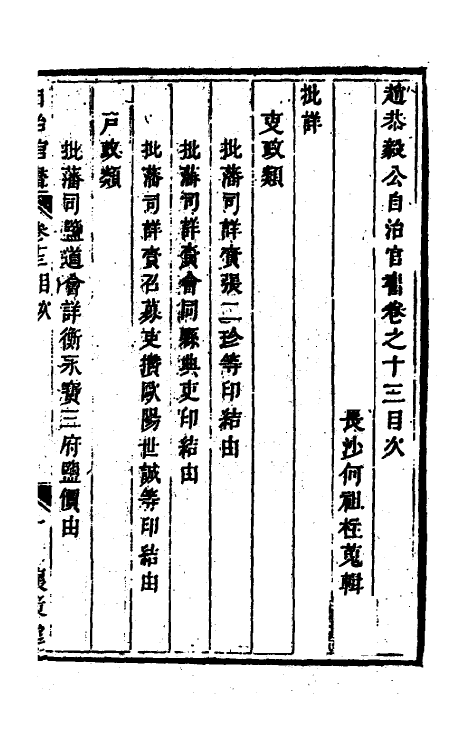 趙恭毅公自治官書卷之十三目次
長沙何祖柱蒐輯
批詳
吏政類
批藩司詳賫張二珍等印結由
批藩司詳賫會同縣典吏印結由
批藩司詳賫召募吏攢歐陽世誠等印結由
戶政類
批藩司鹽道會詳衡永寶三府鹽價由
自治官書 卷十三目次 一 懷策堂